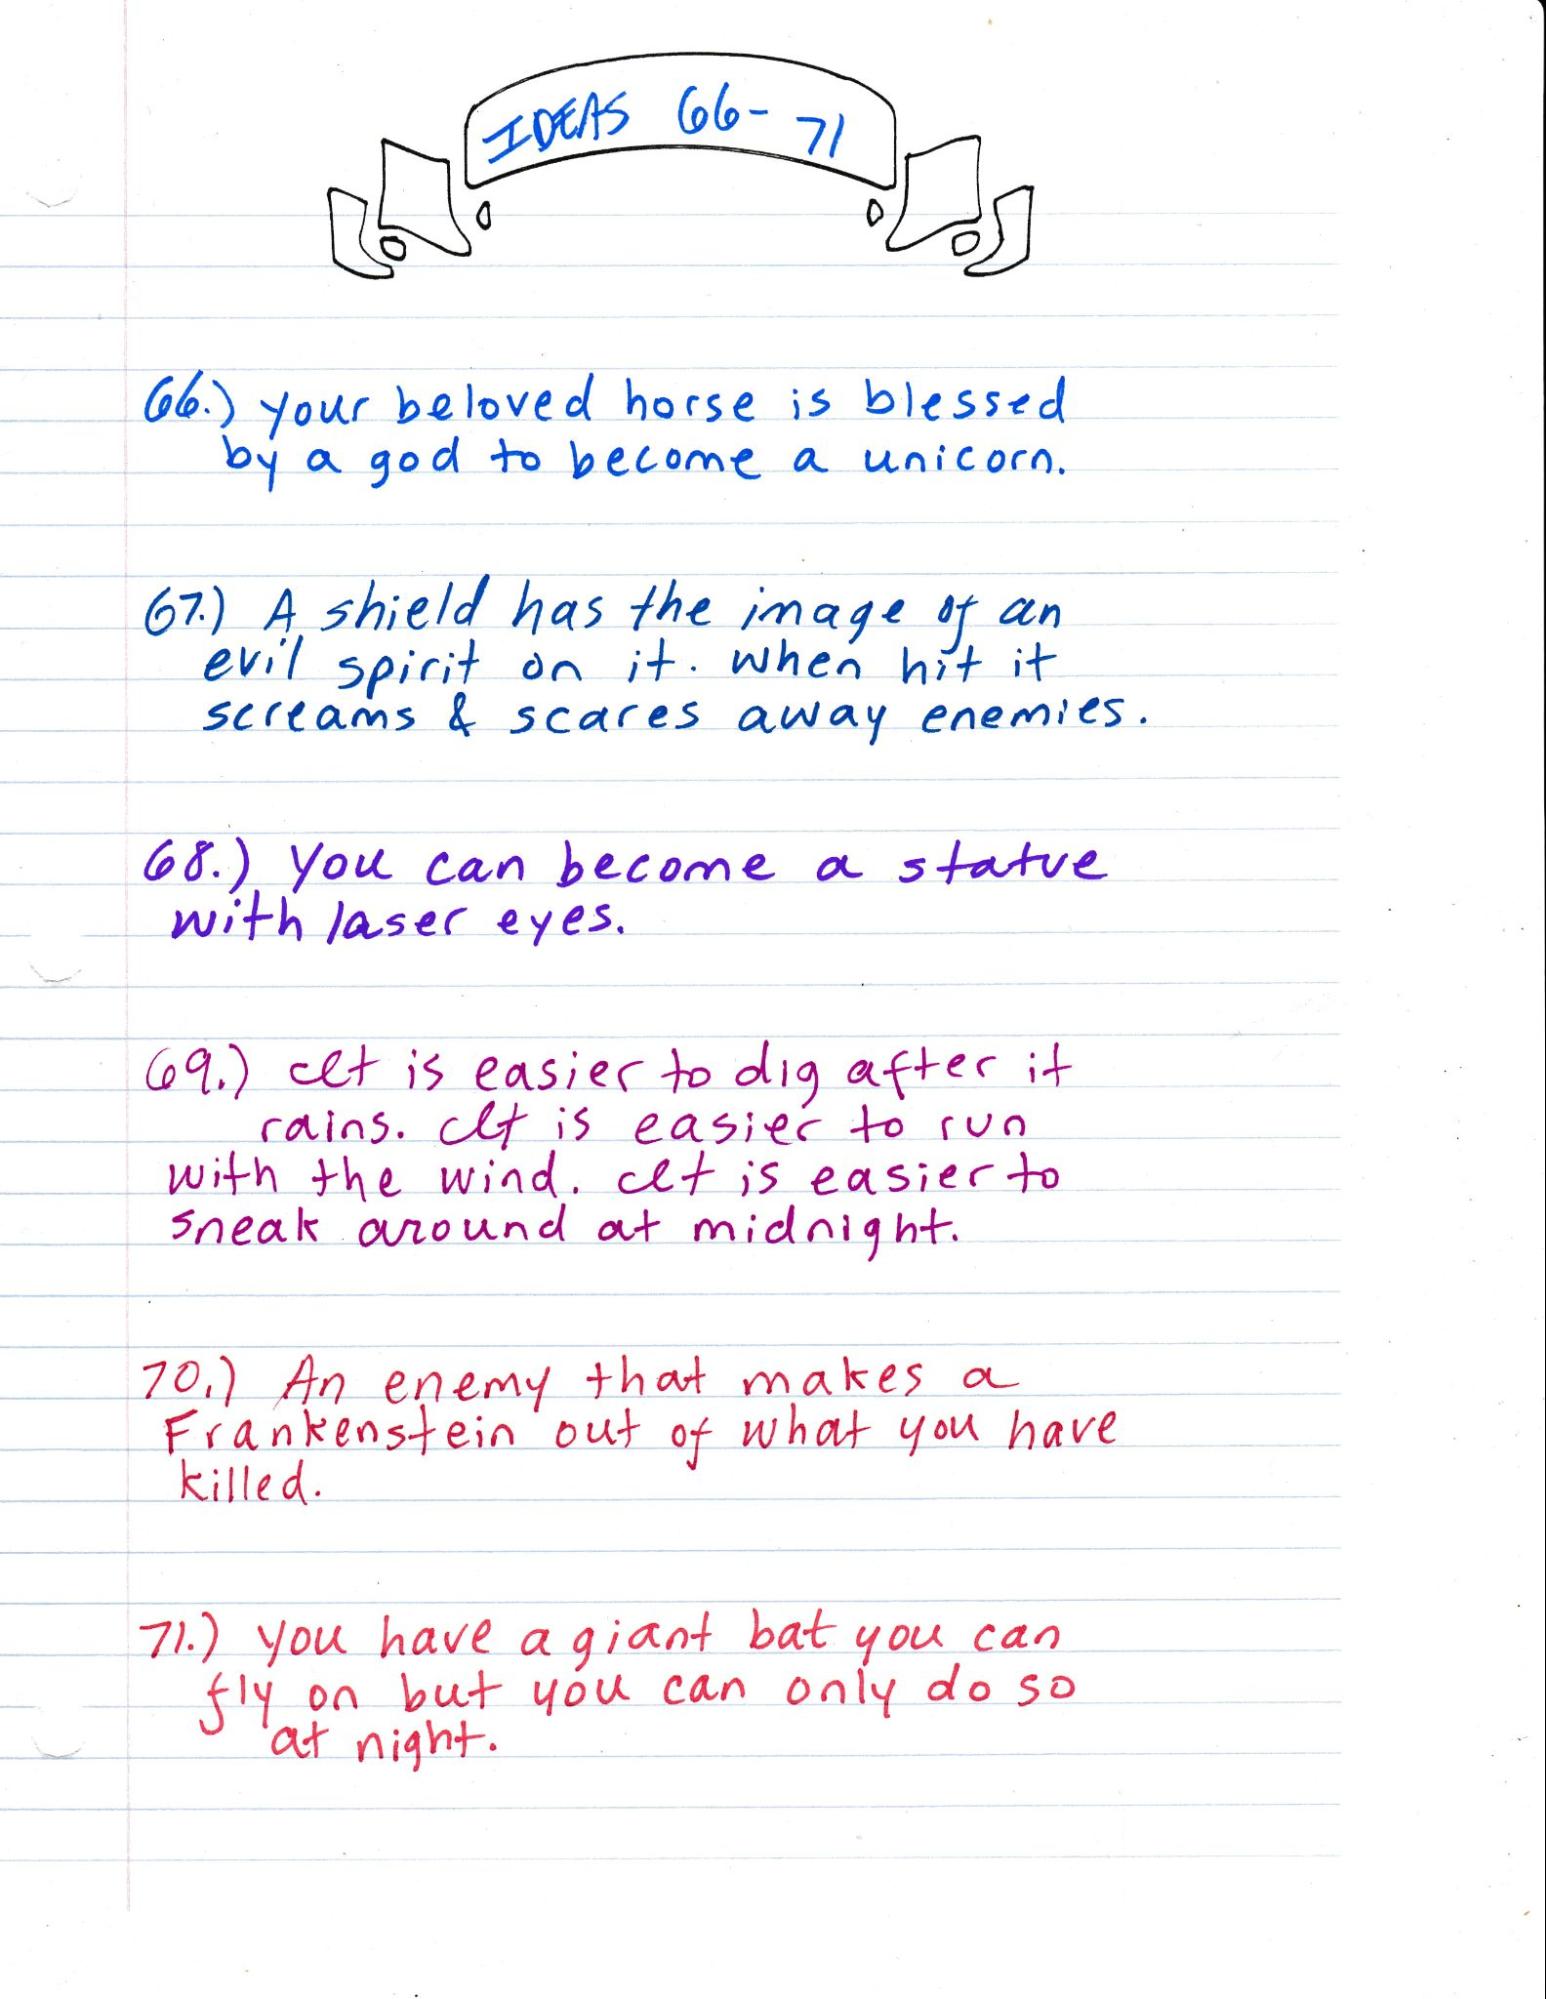 IDEAS 66-71
66.) your beloved horse is blessed
by a god to become a unicorn.
67.) A shield has the image of an
evil spirit on it. when hit it
screams & scares away enemies.
68.) You can become a statue
with laser eyes.
69.) It is easier to dig after it
rains. It is easier to run
with the wind. It is easier to
sneak around at midnight.
70.) An enemy that makes a
Frankenstein out of what you have
killed.
71.) you have a giant bat you can
fly on but you can only do so
at night.